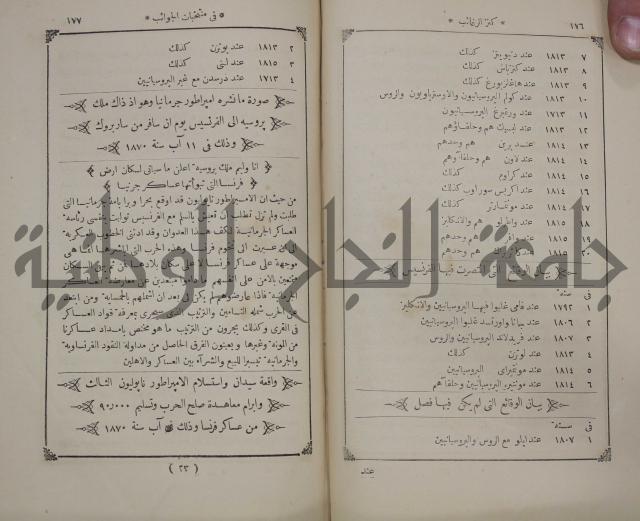 ﴿ كنز الرغائب ﴾ ١٧٦
٧ ١٨١٣ عند دنيويتز كذلك
٨ ١٨١٣ عند كتزباش كذلك
٩ ١٨١٣ عند هاغلزبورغ كذلك
١٠ ١٨١٣ عند كولم البروسيانيون والاوستريانيون والروس
١١ ١٧١٣ عند ورتمبرغ البروسيانيون
١٢ ١٨١٣ عند لبسيك هم وحلفاؤهم
١٣ ١٨١٤ عند برين هم وحدهم
١٤ ١٨١٤ عند لاون هم وحلفاؤهم
١٥ ١٨١٤ عند كراوم كذلك
١٦ ١٨١٤ عند اكريس سور اوب كذلك
١٧ ١٨١٤ عند مونتمارتر كذلك
١٨ ١٨١٥ عند واطرلو هم والانكليز
١٩ ١٨١٥ عند هم وحدهم
٢٠ ١٨١٥ عند هم وحدهم
بيان الوقائع التى انتصرت فيها الفرنسيس
فى سنة
١ ١٧٩٢ عند فالمى غلبوا فيها البروسيانيين والانكليز
٢ ١٨٠٦ عند يانا واورستد غلبوا البروسيانيين
٣ ١٨٠٧ عند فريدلاند البروسيانيين والروس
٤ ١٨١٣ عند لوتزن كذلك
٥ ١٨١٤ عند مونتميراى البروسيانيين
٦ ١٨١٤ عند مونتيرو البروسيانيين وحلفاءهم
بيان الوقائع التى لم يكن فيها فصل
فى سنة
١ ١٨٠٧ عند ايلو مع الروس والبروسيانيين
عند
﴿ فى منتخبات الجوائب ﴾ ١٧٧
٢ ١٨١٣ عند بوتزن كذلك
٣ ١٨١٥ عند لينى كذلك
٤ ١٧١٣ عند درسدن مع غير البروسيانيين
صورة ما نشره امبراطور جرمانيا وهو اذ ذاك ملك
بروسيه الى الفرنسيس يوم ان سافر من ساربروك
وذلك فى ١١ آب سنة ١٨٧٠
انا وليم ملك بروسية اعلن ما سيأتى لسكان ارض
فرنسا التى تبوأتها عساكر جرمانيا
من حيث ان الامبراطور نابوليون قد اوقع بحرا وبرا بامة جرمانيا التى
طلبت ولم تزل تطلب ان تعيش بالسلم مع الفرنسيس توليت بنفسى رئاسة
العساكر الجرمانية لتكف هذا العدوان وقد ادتنى الخطوب العسكرية
الى ان عبرت الى تخوم فرنسا وهذه الحرب التى اباشرها انما هى
موجهة على عساكر فرنسا لا على سكان بلادها
متمتعين بالامن على انفسهم ما داموا مبتعدين عن معارضة العساكر
الجرمانية فاذا عارضوهم لم يكن لى بعد ان اشملهم بالحماية ومن ابتعد
عن الحرب شمله التأمين والترتيب الذى سيجرى بمعرفة قواد العساكر
فى القرى وكذلك يجرون من الترتيب ما هو مختص بامداد عساكرنا
من المونة وغيرها ويعينون الفرق الحاصل من مداولة النقود الفرنساوية
والجرمانية تيسيرا للبيع والشرآء بين العساكر والاهلين
واقعة سيدان واستسلام الامبراطور نابوليون الثالث
وابرام معاهدة صلح الحرب وتسليم ٩٠٫٠٠٠
من عساكر فرنسا وذلك آب سنة ١٨٧٠
(٢٣)
جامعة النجاح الوطنية